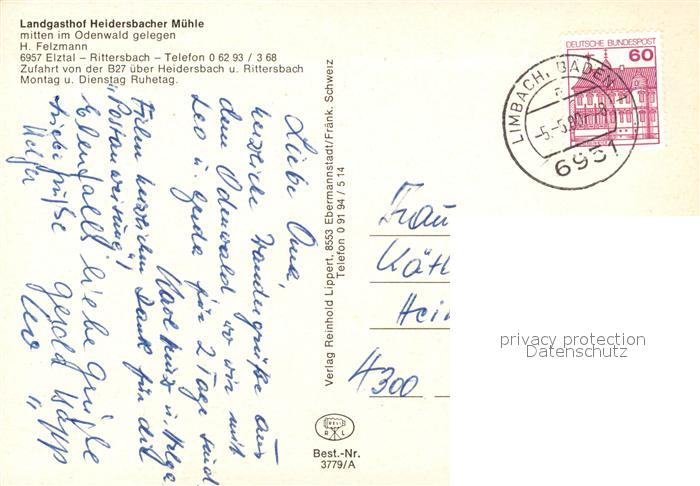 Landgasthof Heidersbacher Mühle
mitten im Odenwald gelegen
H. Felzmann
6957 Elztal – Rittersbach – Telefon 0 62 93 / 3 68
Zufahrt von der B27 über Heidersbach u. Rittersbach
Montag u. Dienstag Ruhetag.
Liebe Oma,
herzliche Wandergrüße aus
dem Odenwald wo wir mit
Leo u. Gerda für 2 Tage sind
Karl Heinz u. Helga
Vielen herzlichen Dank für die
"Postanweisung"!
Ebenfalls liebe Grüße
Gerold
Liebe Grüße
Uwe
Holger
Verlag Reinhold Lippert, 8553 Ebermannstadt/Fränk. Schweiz
Telefon 0 91 94 / 5 14
RELI
R L
Best.-Nr.
3779/A
DEUTSCHE BUNDESPOST
60
LIMBACH, BADEN
-5.-5.80
6951
Frau
Käth
Hein
4300
privacy protection
Datenschutz